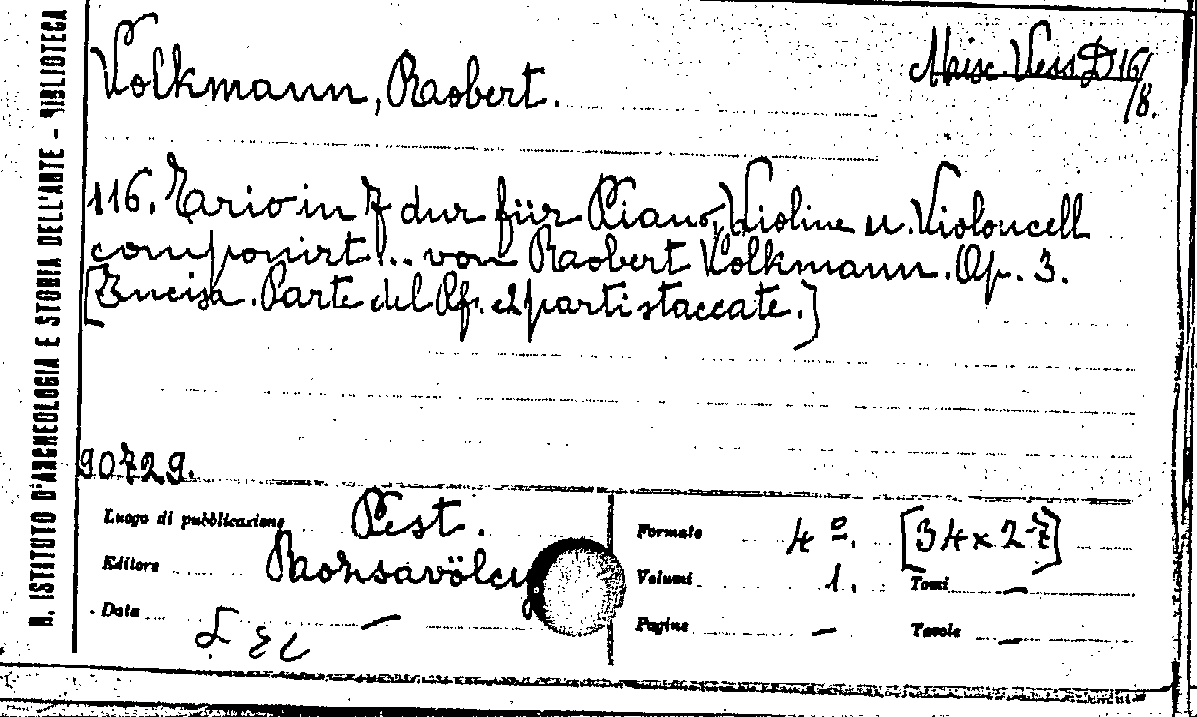 R. ISTITUTO D'ARCHEOLOGIA E STORIA DELL'ARTE - BIBLIOTECA
Volkmann, Robert.
Misc. Vess. D 16/8.
116. Trio in F dur für Piano, Violine u. Violoncell
componirt... von Robert Volkmann. Op. 3.
[Incisa. Parte del Pf. e 2 parti staccate.]
90729.
Luogo di pubblicazione Pest.
Editore Rozsavölcy
Data —
Formato 4º. [34x27]
Volumi 1. Tomi —
Pagine — Tavole —